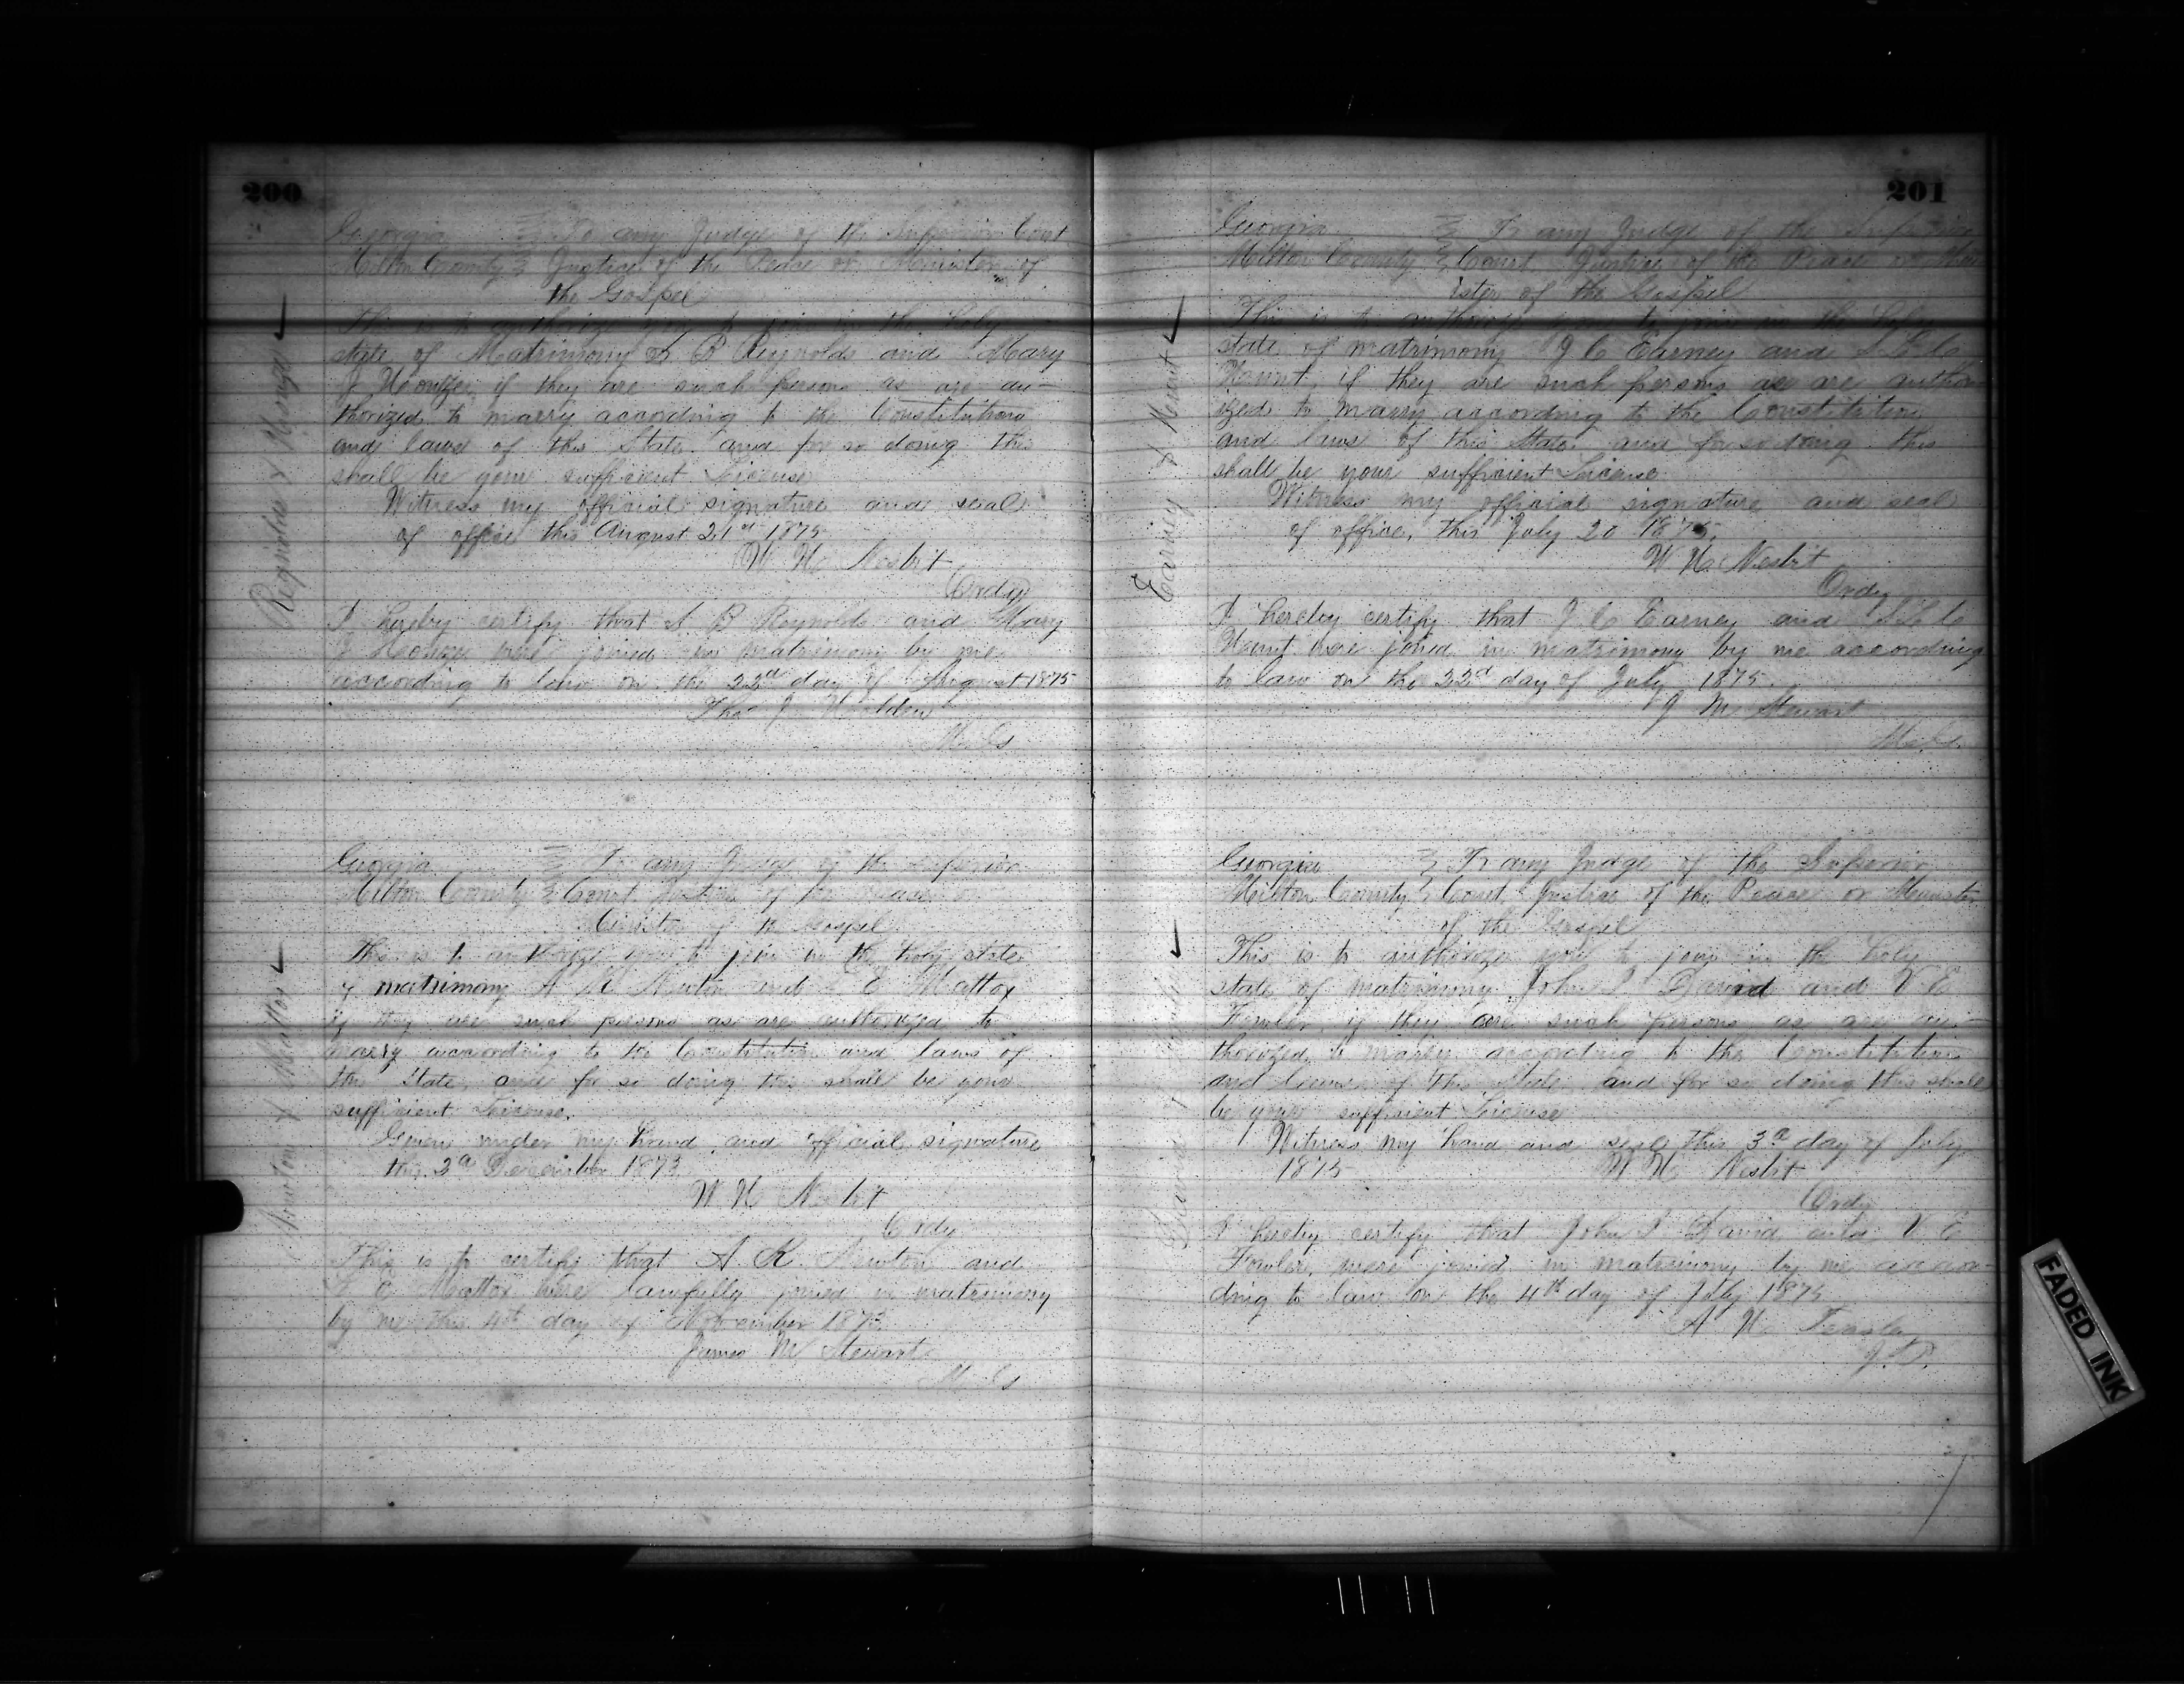 200
Georgia To any Judge of the Superior Court
Milton County Justice of the Peace or Minister of
the Gospel
This is to authorize you to join in the Holy
state of Matrimony B Reynolds and Mary
J if they are such persons as are au-
thorized to marry according to the Constitution
and laws of this State and for so doing this
shall be your sufficient License
Witness my official signature and seal
of office this August 21st 1875
W H Nesbit
Ordy
I hereby certify that B Reynolds and Mary
J were joined in matrimony by me
according to law on the 22d day of August 1875
Thos J
M. G
Reynolds &
Georgia To any Judge of the Superior
Milton County Court Justice of the Peace or
Minister of the Gospel
This is to authorize you to join in the holy state
of matrimony A K Newton and E Mattox
if they are such persons as are authorized to
marry according to the Constitution and laws of
the State, and for so doing this shall be your
sufficient License.
Given under my hand and official signature
this 3d December 1873
W H Nesbit
Ordy
This is to certify that A K Newton and
E Mattox were lawfully joined in matrimony
by me this 4th day of November 1873
James M Stewart
M. G
Newton & Mattox
201
Georgia To any Judge of the Superior
Milton County Court Justice of the Peace or Min
ister of the Gospel
This is to authorize you to join in the Holy
state of matrimony J C Earney and
if they are such persons as are author
ized to marry according to the Constitution
and laws of this State and for so doing this
shall be your sufficient License
Witness my official signature and seal
of office, this July 20 1875.
W H Nesbit
Ordy
I hereby certify that J C Earney and
were joined in matrimony by me according
to law on the 22d day of July 1875.
J M Stewart
M. G.
Earney &
Georgia To any Judge of the Superior
Milton County Court Justice of the Peace or Minister
of the Gospel
This is to authorize you to join in the holy
state of matrimony John S David and V E
Fowler, if they are such persons as are au-
thorized to marry according to the Constitution
and laws of this State and for so doing this shall
be your sufficient License
Witness my hand and seal this 3d day of July
1875 W H Nesbit
Ordy
I hereby certify that John S David and V E
Fowler, were joined in matrimony by me accor-
ding to law on the 4th day of July 1875
A H Teasley
J. P.
David & Fowler
FADED INK